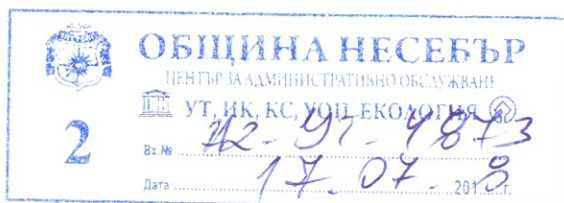 ОБЩИНА НЕСЕБЪР
ЦЕНТЪР ЗА АДМИНИСТРАТИВНО ОБСЛУЖВАНЕ
УТ, ИК, КС, УОП, ЕКОЛОГИЯ
2
Вх.№ Н2-УТ-4873
Дата 17.07.2018г.